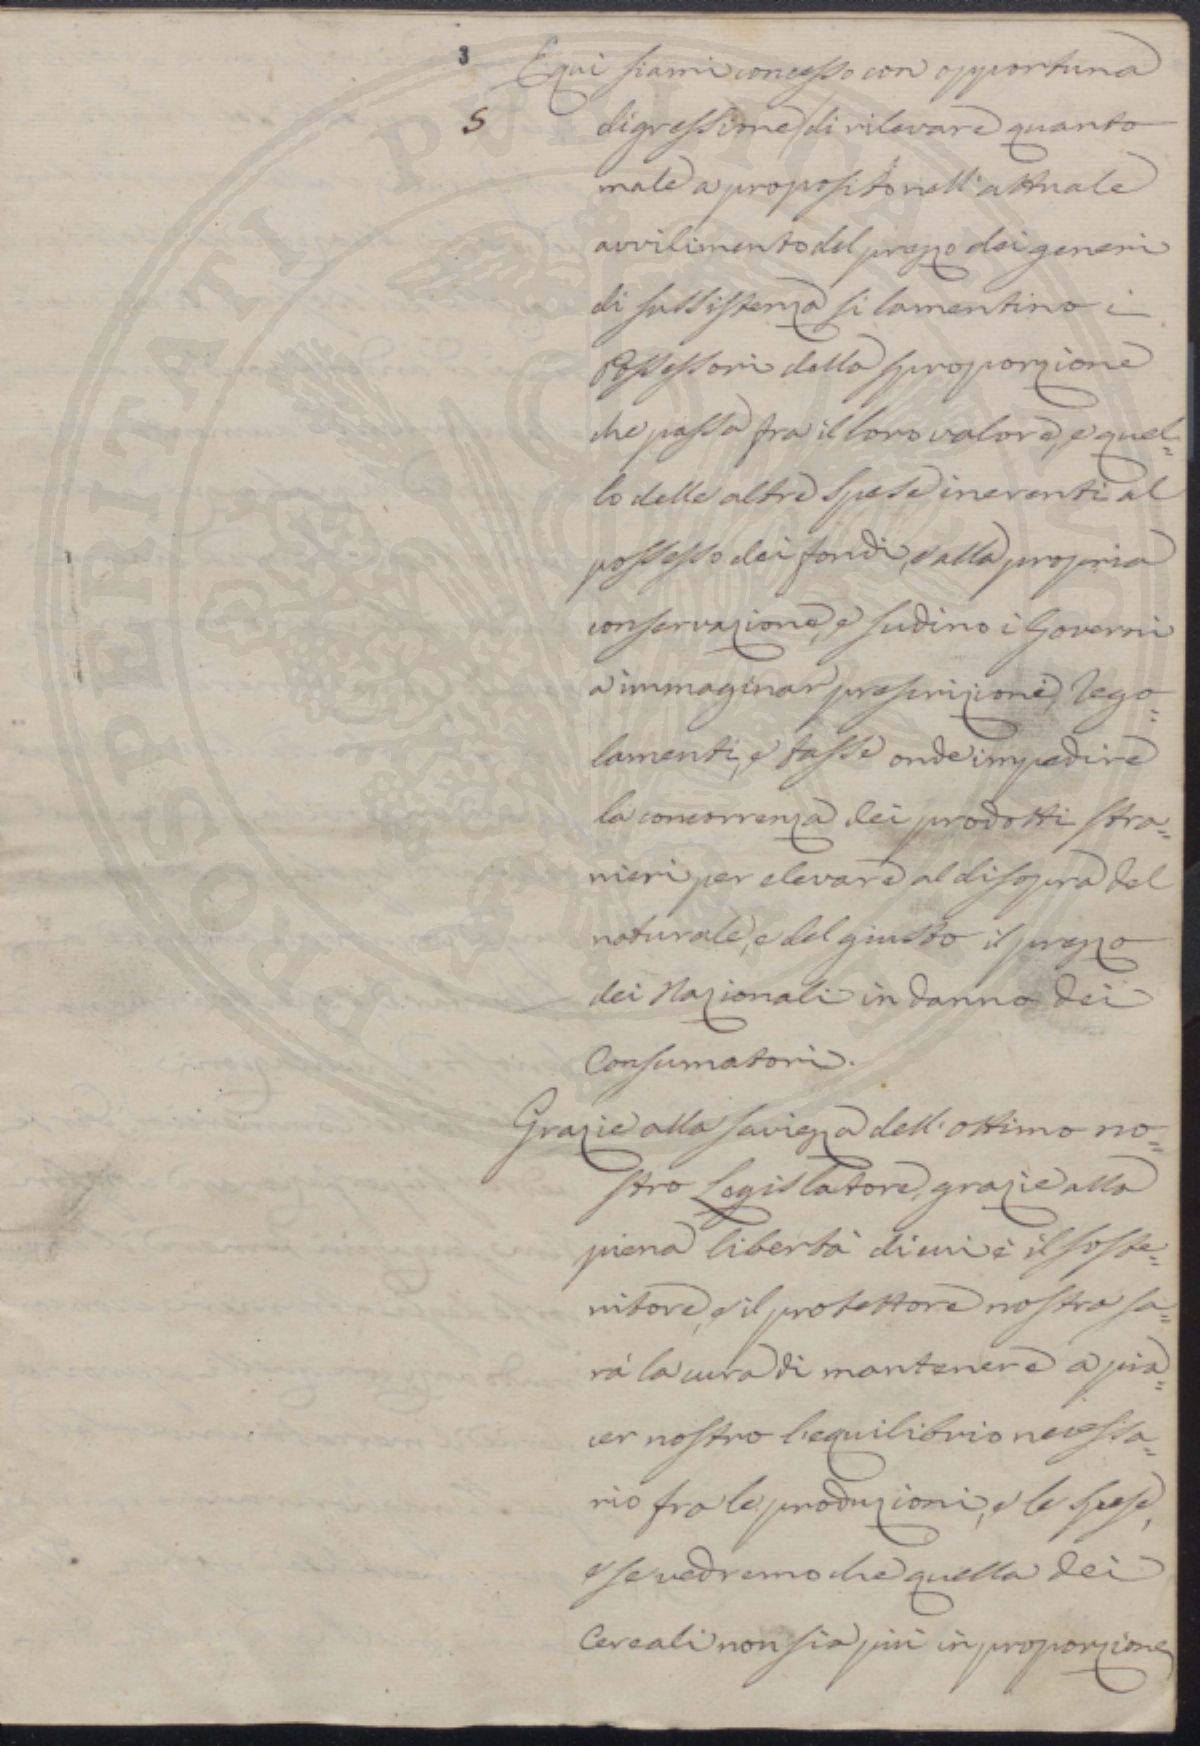 3
5
E quì siami concesso con opportuna
digressione di rilevare quanto
male a proposito nell'attuale
avvilimento del prezzo dei generi
di sussistenza si lamentino i
Possessori della sproporzione
che passa fra il loro valore, e quel=
lo delle altre spese inerenti al
possesso dei fondi, e alla propria
conservazione, e sudino i Governi
a immaginar prescrizioni, rego=
lamenti, e tasse onde impedire
la concorrenza dei prodotti stra=
nieri per elevare al disopra del
naturale, e del giusto il prezzo
dei Nazionali in danno dei
Consumatori.
Grazie alla saviezza dell'ottimo no=
stro Legislatore, grazie alla
piena libertà di cui è il soste=
nitore, e il protettore nostra sa=
rà la cura di mantenere a pia=
cer nostro l'equilibrio necessa=
rio fra le produzioni, e le spese,
e se vedremo che quella dei
Cereali non sia più in proporzione
PROSPERITATI PVBLICAE